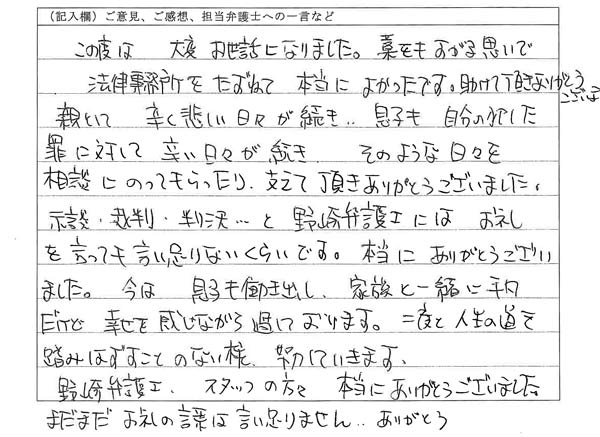 (記入欄)ご意見、ご感想、担当弁護士への一言など
この度は 大変お世話になりました。藁をもすがる思いで
法律事務所をたずねて 本当によかったです。助けて頂きありがとう
ございます
親として 辛く悲しい日々が続き.. 息子も 自分の犯した
罪に対して 辛い日々が続き そのような日々を
相談にのってもらったり、支えて頂きありがとうございました。
示談・裁判・判決…と 野崎弁護士には お礼
を言っても言い足りないくらいです。本当に ありがとうござい
ました。 今は 息子も働き出し、家族と一緒に平凡
だけど 幸せを感じながら過しております。二度と人生の道を
踏みはずすことのない様、努力していきます、
野崎弁護士、 スタッフの方々 本当にありがとうございました。
まだまだ お礼の言葉は言い足りません.. ありがとう